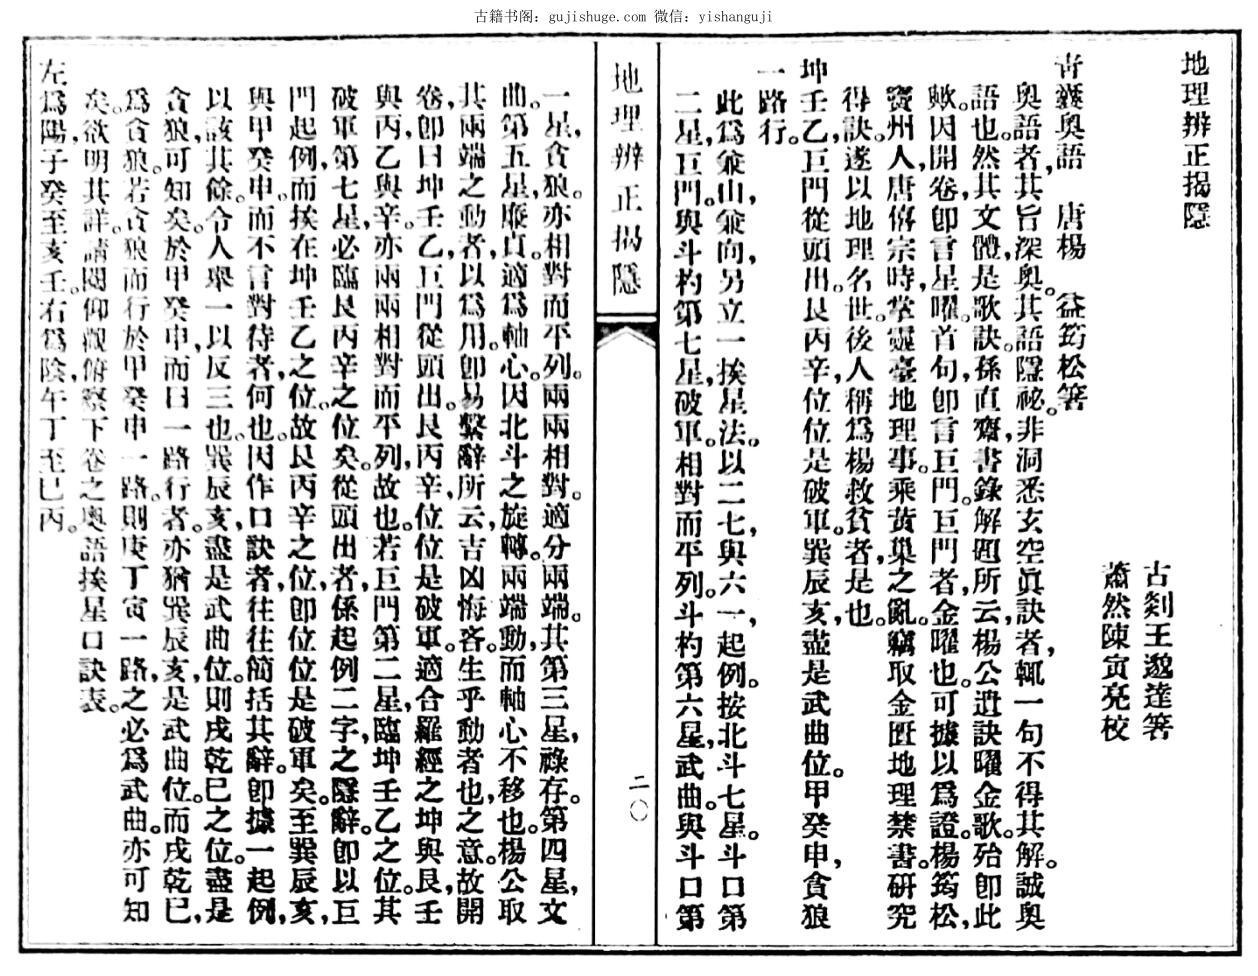 古籍书阁：gujishuge.com 微信：yishanguji
地理辨正揭隱
古剡王邈達箸
蕭然陳寅亮校
青囊奧語　唐楊　益筠松箸
奧語者，其旨深奧。其語隱祕。非洞悉玄空眞訣者，輒一句不得其解。誠奧
語也。然其文體，是歌訣。孫直齋書錄解題所云，楊公遺訣曜金歌。殆卽此
歟。因開卷，卽言星曜。首句，卽言巨門。巨門者，金曜也。可據以爲證。楊筠松，
竇州人，唐僖宗時，掌靈臺地理事。乘黃巢之亂，竊取金匱地理禁書。研究
得訣。遂以地理名世。後人稱爲楊救貧者，是也。
坤壬乙，巨門從頭出。艮丙辛，位位是破軍。巽辰亥，盡是武曲位。甲癸申，貪狼
一路行。
此爲兼山，兼向，另立一挨星法。以二七與六一，起例。按北斗七星。斗口第
二星，巨門。與斗杓第七星，破軍。相對而平列。斗杓第六星，武曲。與斗口第
地理辨正揭隱
二〇
一星，貪狼。亦相對而平列。兩兩相對。適分兩端。其第三星，祿存。第四星，文
曲。第五星，廉貞。適爲軸心。因北斗之旋轉。兩端動，而軸心不移也。楊公取
其兩端之動者，以爲用。卽易繫辭所云，吉凶悔吝。生乎動者也，之意。故開
卷，卽曰坤壬乙，巨門從頭出。艮丙辛，位位是破軍。適合羅經之坤與艮，壬
與丙，乙與辛。亦兩兩相對而平列，故也。若巨門第二星，臨坤壬乙之位。其
破軍第七星，必臨艮丙辛之位矣。從頭出者，係起例二字，之隱辭。卽以巨
門起例，而挨在坤壬乙之位。故艮丙辛之位，卽位位是破軍矣。至巽辰亥，
與甲癸申。而不言對待者，何也。因作口訣者，往往簡括其辭。卽據一起例，
以該其餘。令人舉一以反三也。巽辰亥，盡是武曲位。則戌乾巳之位。盡是
貪狼可知矣。於甲癸申，而曰一路行者。亦猶巽辰亥，是武曲位。而戌乾巳，
爲貪狼。若貪狼而行於甲癸申一路。則庚丁寅一路，之必爲武曲。亦可知
矣。欲明其詳。請閱仰觀俯察下卷之奧語挨星口訣表。
左爲陽，子癸至亥壬。右爲陰，午丁至巳丙。